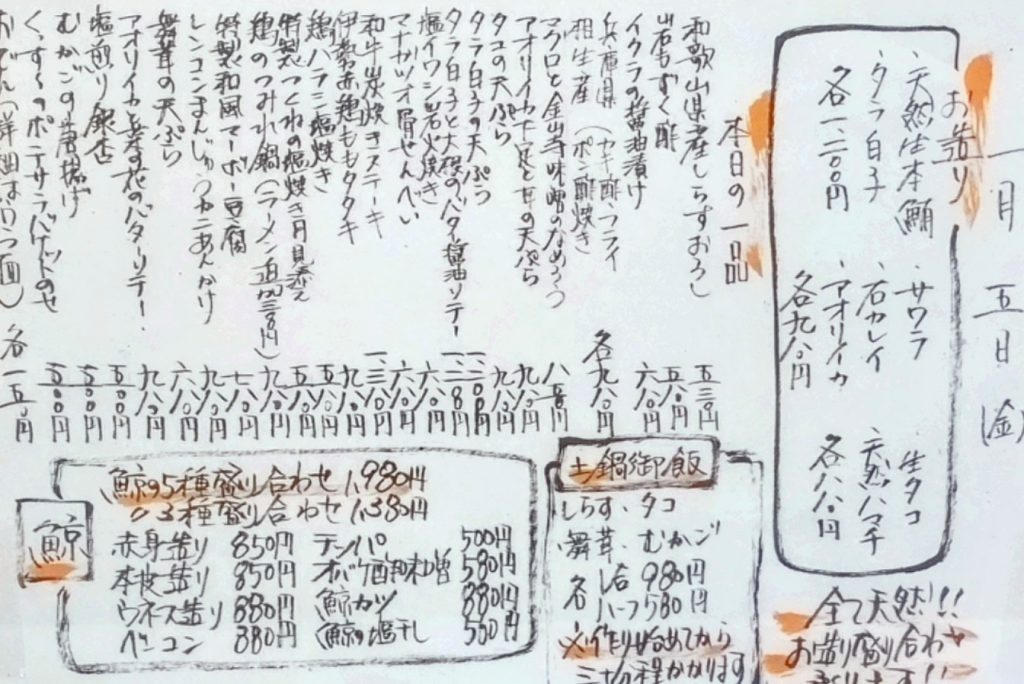 一月五日(金)
お造り
・天然生本鮪
・タラ白子
各一、二〇〇円
・サワラ
・石カレイ
・アオリイカ
各九八〇円
・生タコ
・天然ハマチ
各八八〇円
全て天然!!
お造り盛り合わせ
本日の一品
和歌山県産しらすおろし 五三〇円
岩もずく酢 五八〇円
イクラの醤油漬け 六八〇円
兵庫県
相生産(カキ酢・フライ
ポン酢焼き 各九八〇円
マグロと金山寺味噌のなめろう 八五〇円
アオリイカ下足と
の天ぷら 九八〇円
タコの天ぷら 九八〇円
タラ白子の天ぷら
タラ白子と大根のバター醤油ソテー
塩イワシ岩火焼き 六八〇円
マナカツオ骨せんべい 六八〇円
和牛炭焼きステーキ
伊勢赤鶏ももタタキ 九八〇円
鶏ハラミ塩焼き 五八〇円
特製つくねの塩焼き 月見添え 五八〇円
鶏のつみれ鍋(ラーメン追加三三〇円) 九八〇円
特製和風マーボー豆腐 七八〇円
レンコンまんじゅうカニあんかけ 九八〇円
舞茸の天ぷら 六八〇円
アオリイカと菜の花のバターソテー 九八〇円
塩煎り銀杏 五八〇円
むかごの唐揚げ 五〇〇円
くん
のポテサラバゲットのせ 五〇〇円
おでん(詳細は
面) 各一五〇円
土鍋御飯
しらす、タコ
舞茸、むかご
各 一合 980円
ハーフ580円
※作り始めてから
三十分程かかります
鯨
鯨の5種盛り合わせ 1,980円
〃の3種盛り合わせ 1,380円
赤身造り 850円
本皮造り 850円
ウネス造り 880円
ベーコン 880円
テッパ 500円
オバケ酢味噌 580円
鯨カツ 880円
鯨の塩干し 580円